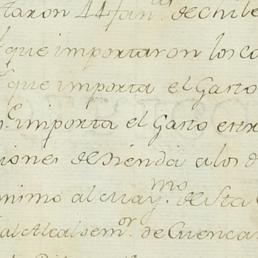 taron 44 fan.s de chile
que importaron los ca
que importa el Gasto
importa el Gasto extra
iones de tienda a los d
nimo al May.mo de Sta
al Alcalde m.or de Cuenca